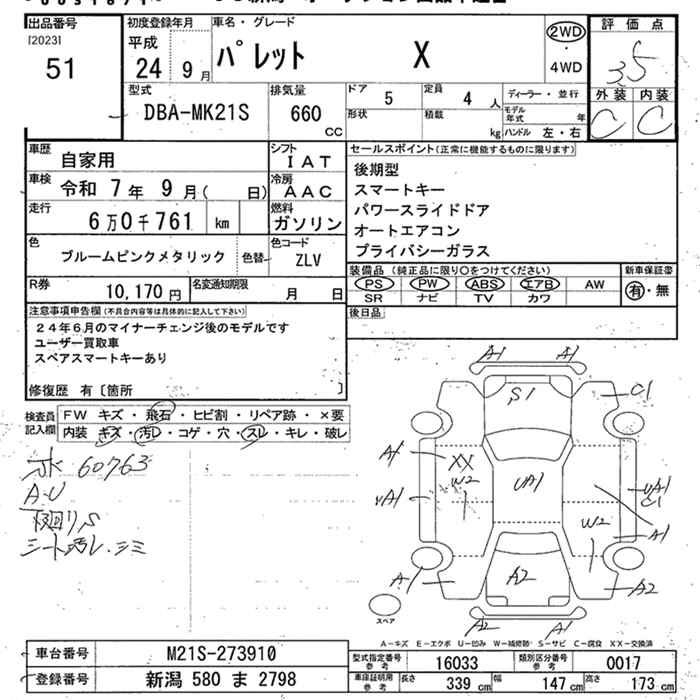 出品番号
[2023]
51
初度登録年月
平成
24年 9月
車名・グレード
パレット X
2WD
4WD
評価点
3.5
外装 内装
C C
型式
DBA-MK21S
排気量
660
CC
ドア 5
定員 4 人
形状
積載 kg
ディーラー・並行
モデル年式 年
ハンドル 左・右
車歴 自家用
シフト IAT
車検 令和 7年 9月( 日)
冷房 AAC
走行 6万0千761 km
燃料 ガソリン
色 ブルームピンクメタリック
色替
色コード ZLV
R券 10,170円
名変通知期限 月 日
セールスポイント(正常に機能するものに限ります)
後期型
スマートキー
パワースライドドア
オートエアコン
プライバシーガラス
装備品 (純正品に限り○をつけてください)
PS PW ABS エアB AW
SR ナビ TV カワ
新車保証書
有・無
後日品
注意事項申告欄(不具合内容等は具体的に記入して下さい)
24年6月のマイナーチェンジ後のモデルです
ユーザー買取車
スペアスマートキーあり
修復歴 有〔箇所 〕
検査員記入欄
FW キズ・飛石・ヒビ割・リペア跡・×要
内装 キズ・汚レ・コゲ・穴・スレ・キレ・破レ
60763
A・U
下廻りS
シート汚レ・シミ
A1 A1
S1
C1
A1
XX
W2
UA1
UA1
C1
A1
W2
A1
A2
A2
A2 A1
スペア
A-キズ E-エクボ U-凹み W-補修跡 S-サビ C-腐食 XX-交換済
車台番号 M21S-273910
登録番号 新潟 580 ま 2798
型式指定番号 参考 16033
類別区分番号 参考 0017
車庫証明用 参考 長さ 339cm 幅 147cm 高さ 173cm